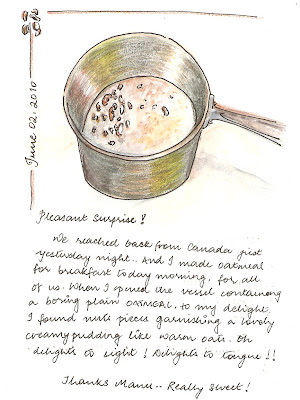 June 02, 2010
Pleasant Surprise !
We reached back from Canada just
yesterday night.. And I made oatmeal
for breakfast today morning, for all
of us. When I opened the vessel containing
a boring plain OATMEAL, to my delight
I found nuts pieces garnishing a lovely
creamy pudding like warm oats. Oh
delights to sight ! Delights to tongue !!
Thanks Manu.. Really sweet !